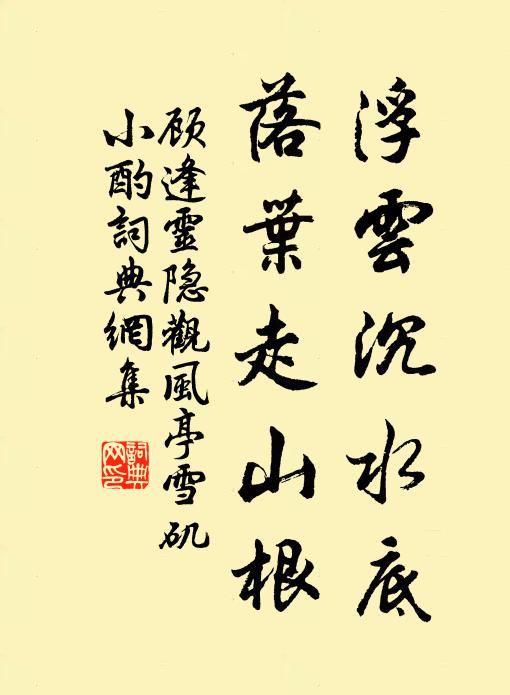 浮雲沉水底
落葉走山根
顾逢靈隐觀風亭雪矶
小酌詞典網集
詞典网印